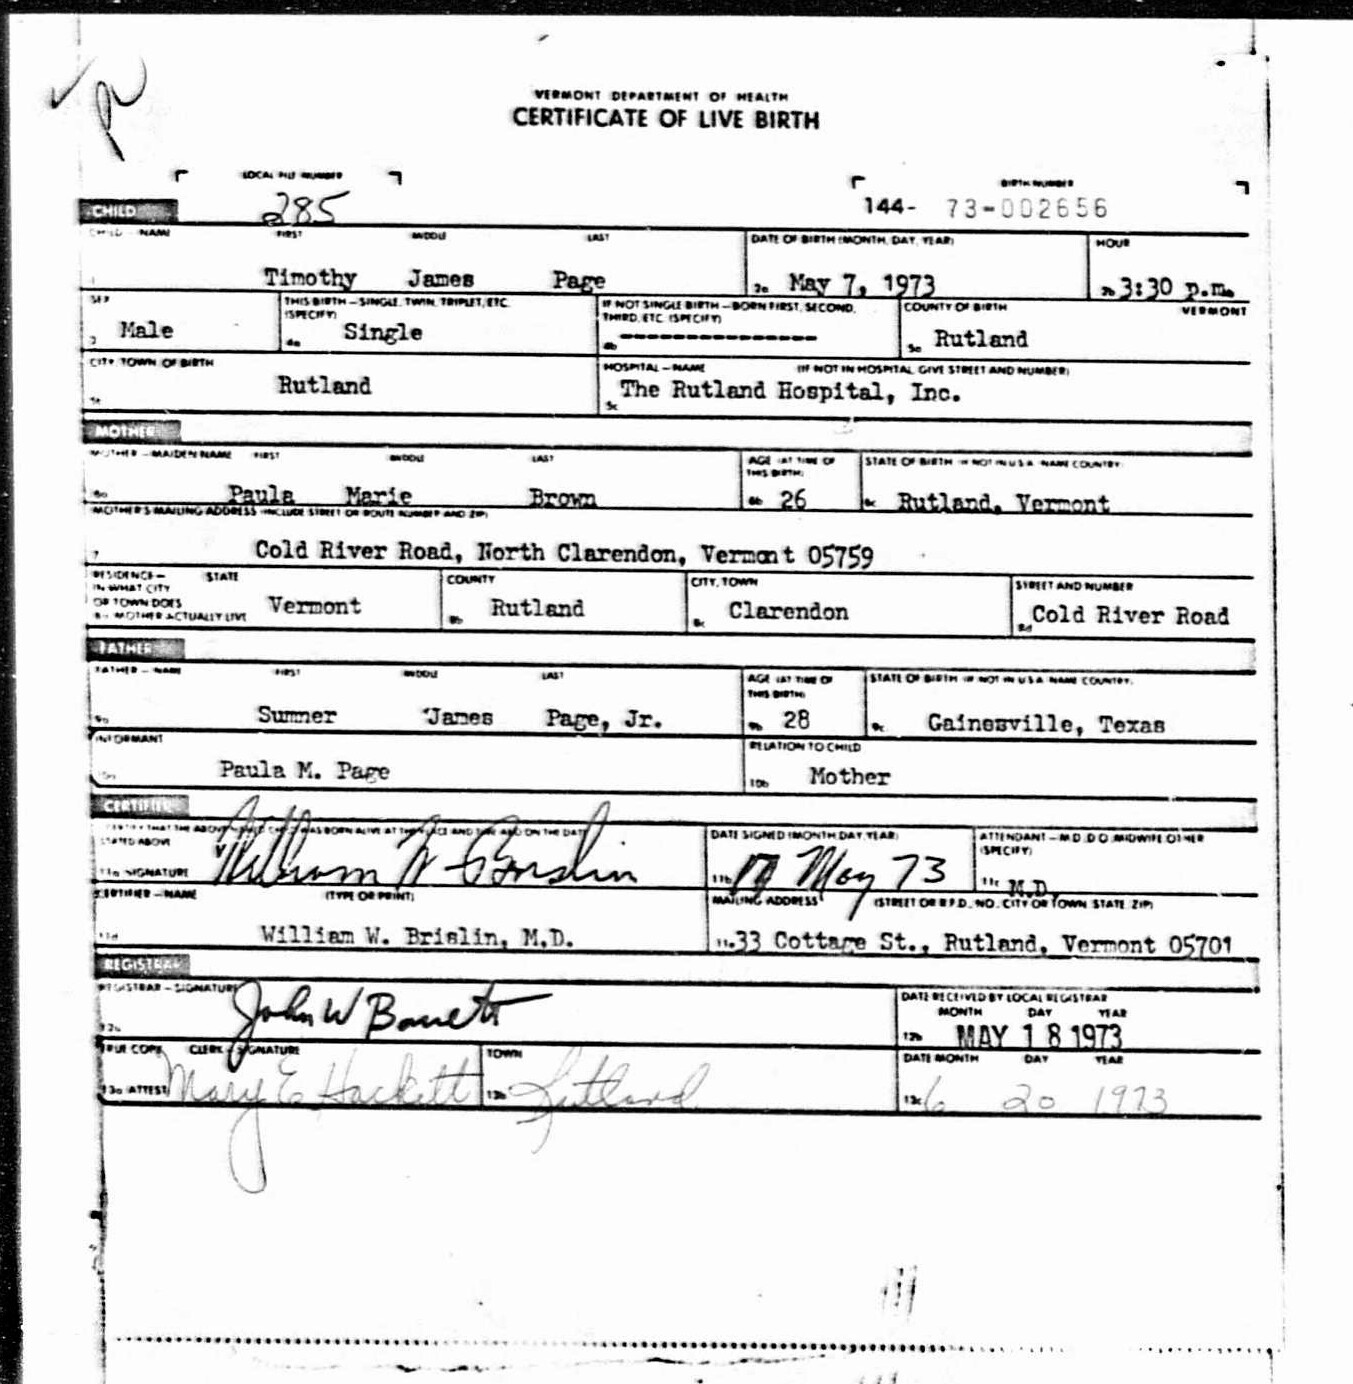 VERMONT DEPARTMENT OF HEALTH
CERTIFICATE OF LIVE BIRTH
LOCAL FILE NUMBER
BIRTH NUMBER
285
144- 73-002656
CHILD
CHILD — NAME FIRST MIDDLE LAST
DATE OF BIRTH (MONTH, DAY, YEAR)
HOUR
1 Timothy James Page
2a May 7, 1973
2b 3:30 p.m.
SEX
THIS BIRTH — SINGLE, TWIN, TRIPLET, ETC. (SPECIFY)
IF NOT SINGLE BIRTH — BORN FIRST, SECOND, THIRD, ETC. (SPECIFY)
COUNTY OF BIRTH
VERMONT
3 Male
4a Single
4b ---------------
5a Rutland
CITY, TOWN OF BIRTH
HOSPITAL — NAME (IF NOT IN HOSPITAL, GIVE STREET AND NUMBER)
Rutland
5c The Rutland Hospital, Inc.
MOTHER
MOTHER — MAIDEN NAME FIRST MIDDLE LAST
AGE (AT TIME OF THIS BIRTH)
STATE OF BIRTH (IF NOT IN U.S.A. NAME COUNTRY)
6a Paula Marie Brown
6b 26
6c Rutland, Vermont
MOTHER'S MAILING ADDRESS (INCLUDE STREET OR ROUTE NUMBER AND ZIP)
7 Cold River Road, North Clarendon, Vermont 05759
RESIDENCE — IN WHAT CITY OR TOWN DOES MOTHER ACTUALLY LIVE
STATE
COUNTY
CITY, TOWN
STREET AND NUMBER
Vermont
8b Rutland
8c Clarendon
8d Cold River Road
FATHER
FATHER — NAME FIRST MIDDLE LAST
AGE (AT TIME OF THIS BIRTH)
STATE OF BIRTH (IF NOT IN U.S.A. NAME COUNTRY)
9a Sumner James Page, Jr.
9b 28
9c Gainesville, Texas
INFORMANT
RELATION TO CHILD
10a Paula M. Page
10b Mother
CERTIFIER
I CERTIFY THAT THE ABOVE NAMED CHILD WAS BORN ALIVE AT THE PLACE AND TIME AND ON THE DATE STATED ABOVE
DATE SIGNED (MONTH, DAY, YEAR)
ATTENDANT — M.D., D.O., MIDWIFE, OTHER (SPECIFY)
11a SIGNATURE William W Brislin
11b May 73
11c M.D.
CERTIFIER — NAME (TYPE OR PRINT)
MAILING ADDRESS (STREET OR R.F.D. NO., CITY OR TOWN, STATE, ZIP)
11d William W. Brislin, M.D.
11e 33 Cottage St., Rutland, Vermont 05701
REGISTRAR
REGISTRAR — SIGNATURE
DATE RECEIVED BY LOCAL REGISTRAR
MONTH DAY YEAR
12a John W Barrett
12b MAY 18 1973
TRUE COPY CLERK SIGNATURE
TOWN
DATE MONTH DAY YEAR
13a (ATTEST) Mary E Hackett
13b Rutland
13c 6 20 1973